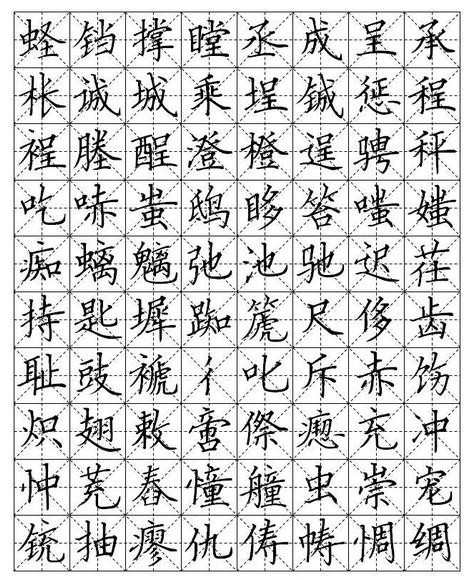 蛏铛撑瞠丞成呈承
枨诚城乘埕铖惩程
裎塍酲澄橙逞骋秤
吃哧蚩鸱眵笞嗤媸
痴螭魑弛池驰迟茌
持匙墀踟篪尺侈齿
耻豉褫彳叱斥赤饬
炽翅敕啻傺瘛充冲
忡茺舂憧艟虫崇宠
铳抽瘳仇俦帱惆绸